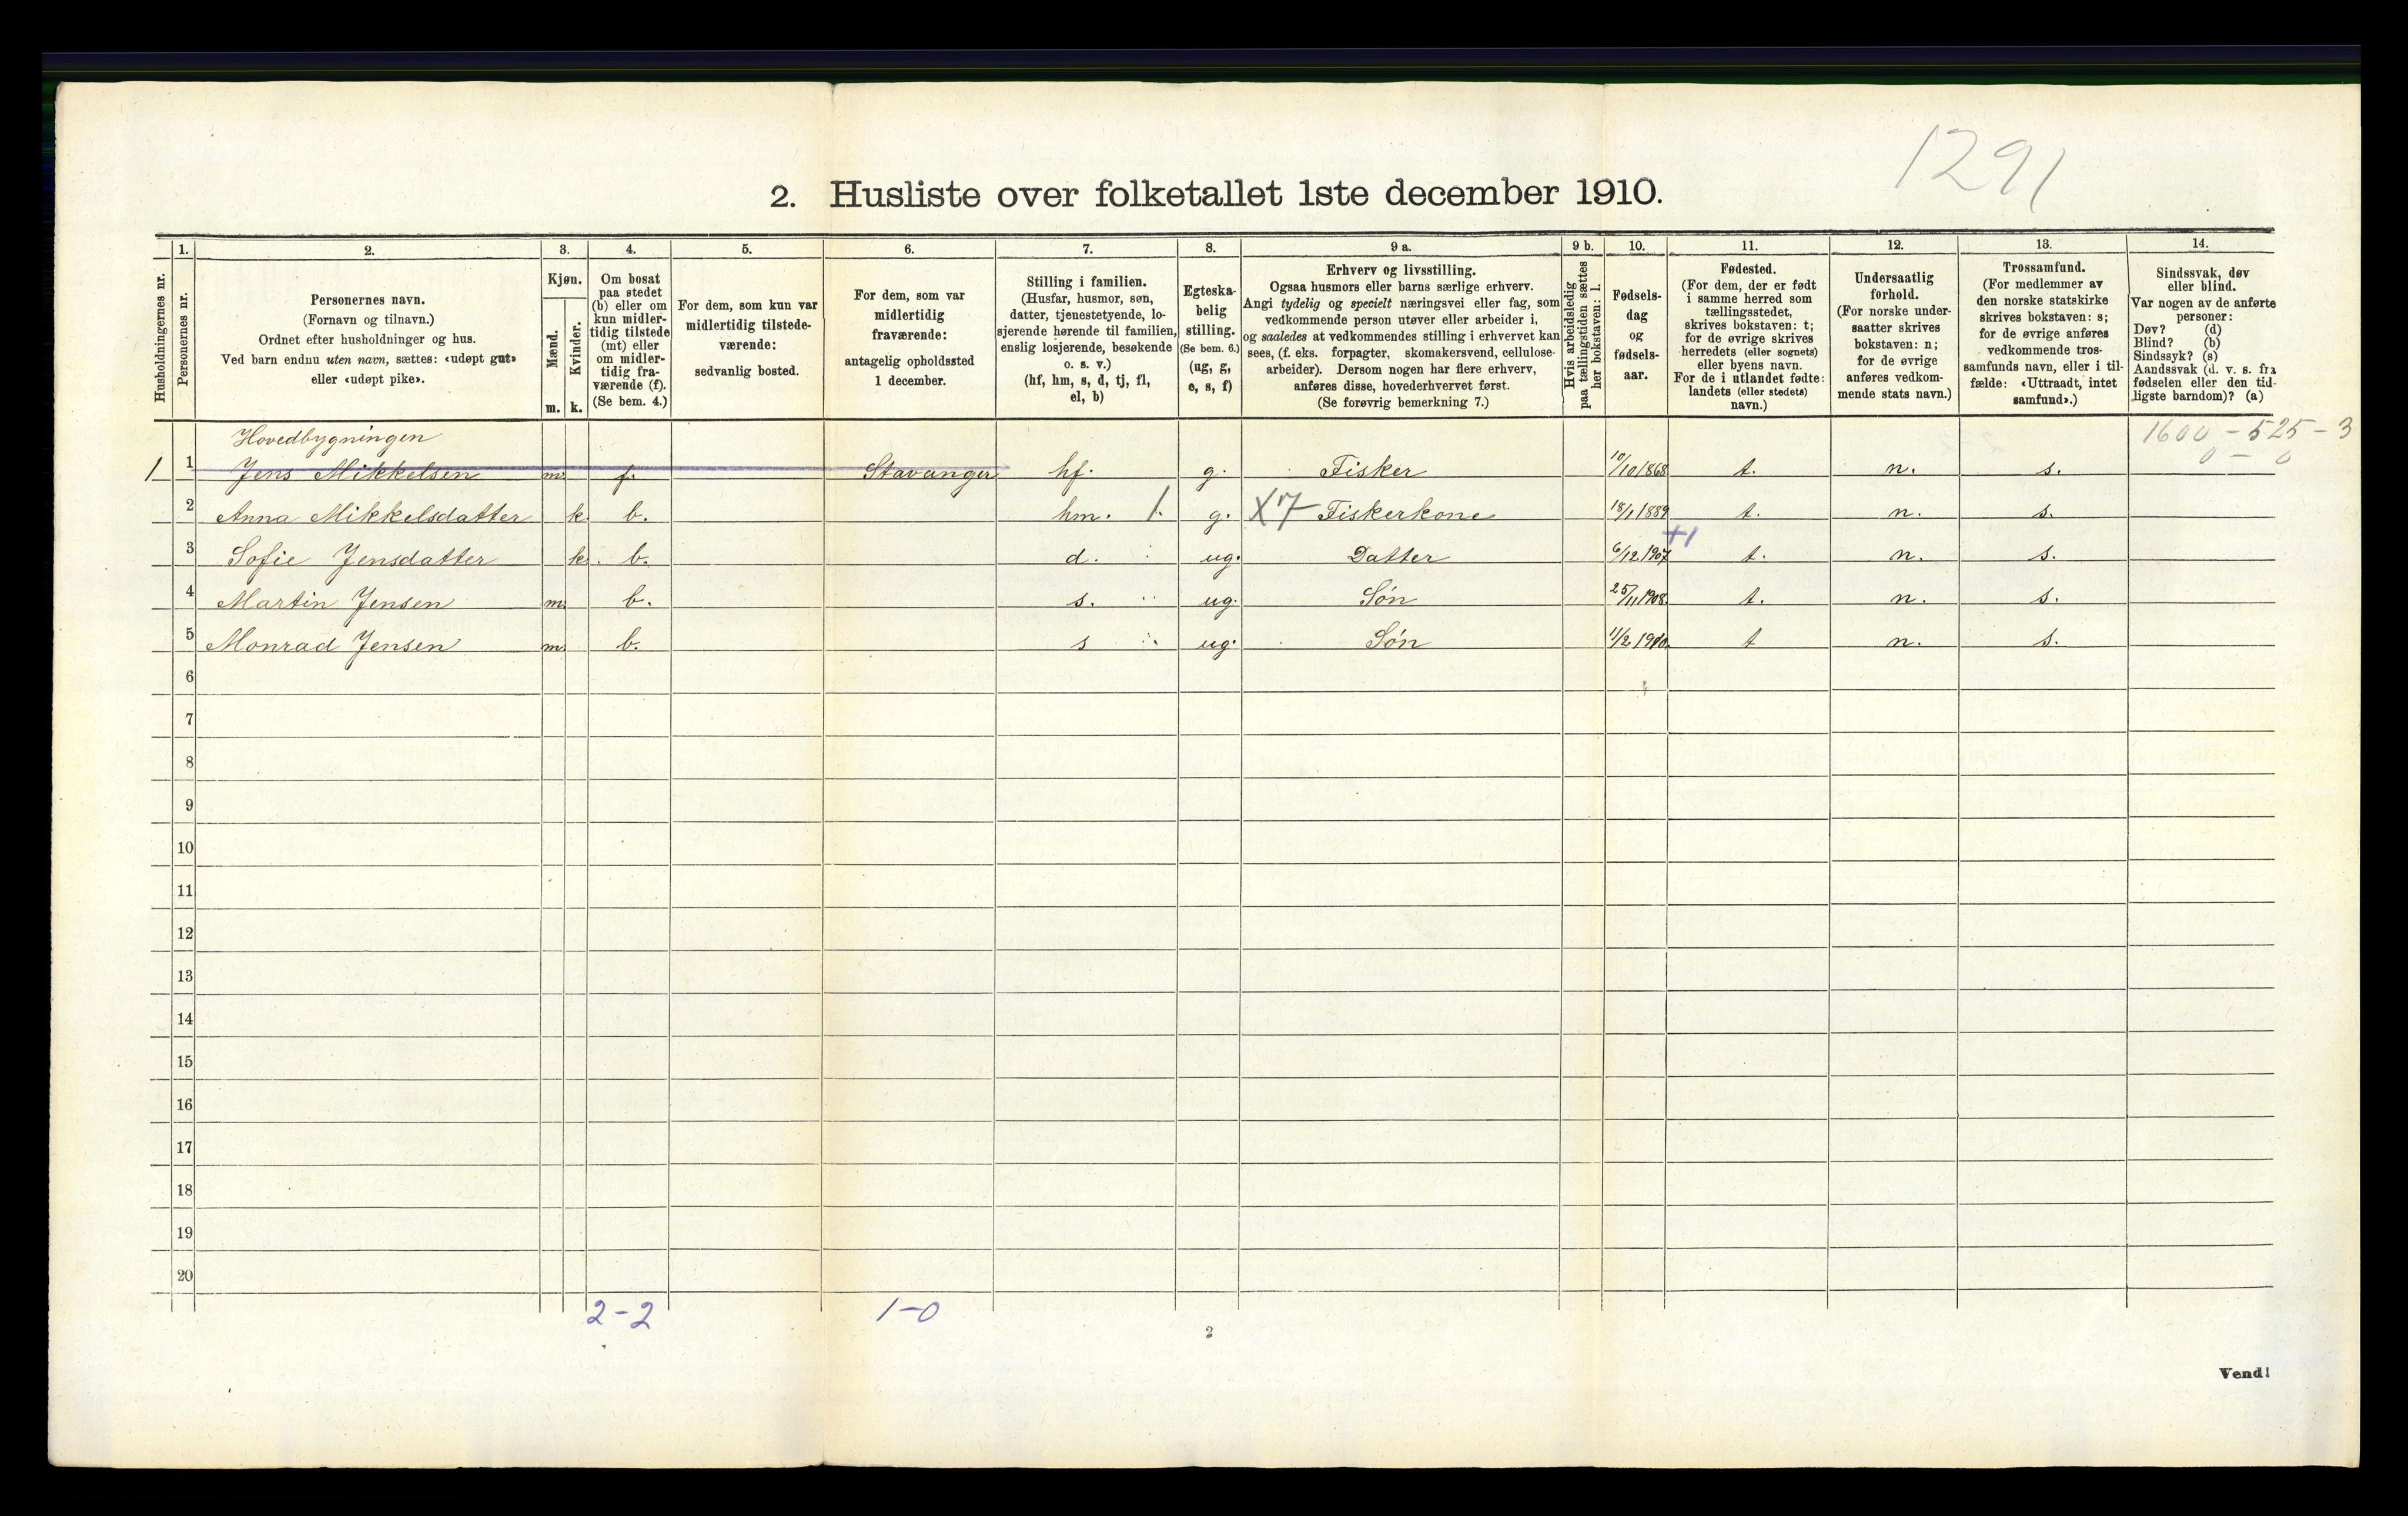 1291
2. Husliste over folketallet 1ste december 1910.
1. 2. 3. 4. 5. 6. 7. 8. 9 a. 9 b. 10. 11. 12. 13. 14.
Husholdningernes nr.
Personernes nr.
Personernes navn.
(Fornavn og tilnavn.)
Ordnet efter husholdninger og hus.
Ved barn endnu uten navn, sættes: «udøpt gut»
eller «udøpt pike».
Kjøn.
Mænd.
Kvinder.
m. k.
Om bosat
paa stedet
(b) eller om
kun midler-
tidig tilstede
(mt) eller
om midler-
tidig fra-
værende (f).
(Se bem. 4.)
For dem, som kun var
midlertidig tilstede-
værende:
sedvanlig bosted.
For dem, som var
midlertidig
fraværende:
antagelig opholdssted
1 december.
Stilling i familien.
(Husfar, husmor, søn,
datter, tjenestetyende, lo-
sjerende hørende til familien,
enslig losjerende, besøkende
o. s. v.)
(hf, hm, s, d, tj, fl,
el, b)
Egteska-
belig
stilling.
(Se bem. 6.)
(ug, g,
e, s, f)
Erhverv og livsstilling.
Ogsaa husmors eller barns særlige erhverv.
Angi tydelig og specielt næringsvei eller fag, som
vedkommende person utøver eller arbeider i,
og saaledes at vedkommendes stilling i erhvervet kan
sees, (f. eks. forpagter, skomakersvend, cellulose-
arbeider). Dersom nogen har flere erhverv,
anføres disse, hovederhvervet først.
(Se forøvrig bemerkning 7.)
Hvis arbeidsledig
paa tællingstiden sættes
her bokstaven: l.
Fødsels-
dag
og
fødsels-
aar.
Fødested.
(For dem, der er født
i samme herred som
tællingsstedet,
skrives bokstaven: t;
for de øvrige skrives
herredets (eller sognets)
eller byens navn.
For de i utlandet fødte:
landets (eller stedets)
navn.)
Undersaatlig
forhold.
(For norske under-
saatter skrives
bokstaven: n;
for de øvrige
anføres vedkom-
mende stats navn.)
Trossamfund.
(For medlemmer av
den norske statskirke
skrives bokstaven: s;
for de øvrige anføres
vedkommende tros-
samfunds navn, eller i til-
fælde: «Uttraadt, intet
samfund».)
Sindssvak, døv
eller blind.
Var nogen av de anførte
personer:
Døv? (d)
Blind? (b)
Sindssyk? (s)
Aandssvak (d. v. s. fra
fødselen eller den tid-
ligste barndom)? (a)
Hovedbygningen 1600 - 525 - 3
0 - 0
1 1 Jens Mikkelsen m. f. Stavanger hf. g. Fisker 10/10 1868 t. n. s.
2 Anna Mikkelsdatter k. b. hm. 1. g. X7 Fiskerkone 18/1 1889 t. n. s.
+1
3 Sofie Jensdatter k. b. d. ug. Datter 6/12 1907 t. n. s.
4 Martin Jensen m. b. s. ug. Søn 25/11 1908. t. n. s.
5 Monrad Jensen m. b. s ug. Søn 11/2 1910. t n. s.
6
7
8
9
10
11
12
13
14
15
16
17
18
19
20
2-2 1-0
2
Vend!